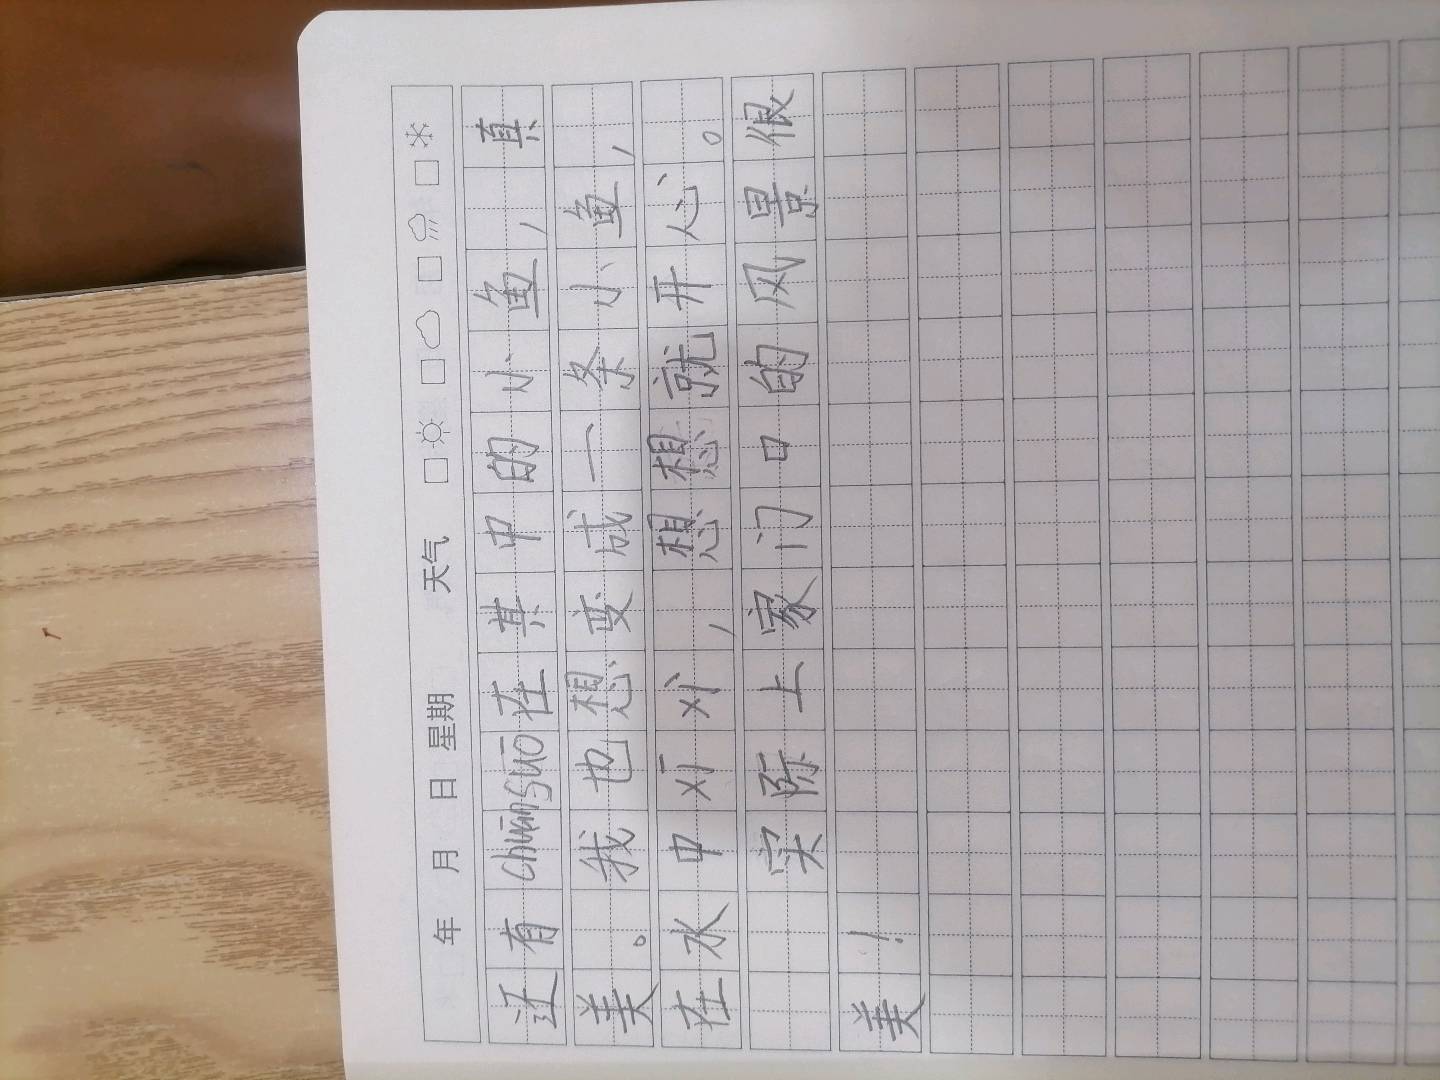 年 月 日 星期 天气
还有chuāngsuō在其中的小鱼，真
美。我也想变成一条小鱼，
在水中xīxì，想想就开心。
实际上家门口的风景很
美！